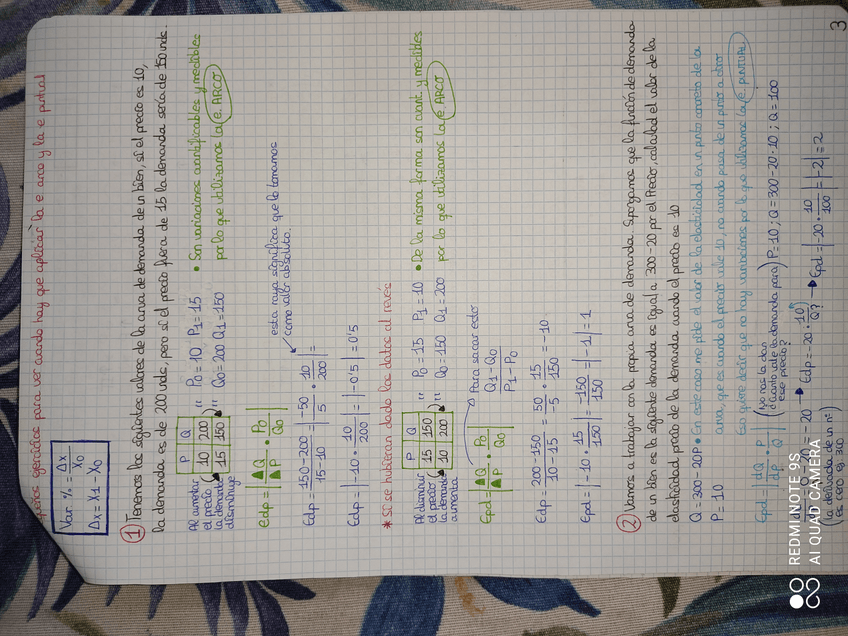 ejercicios para ver cuando hay que aplicar la e arco y la e puntual
Var % = Δx / x0
Δx = x1 - x0
① Tenemos los siguientes valores de la curva de demanda de un bien, si el precio es 10,
la demanda es de 200 unds, pero si el precio fuera de 15 la demanda sería de 150 unds.
Al aumentar el precio la demanda disminuye
P Q
10 200
15 150
P0 = 10 P1 = 15
Q0 = 200 Q1 = 150
• Son variaciones cuantificables y medibles
por lo que utilizamos la e. ARCO
Edp = |ΔQ/ΔP · P0/Q0|
esta raya significa que lo tomamos
como valor absoluto.
Edp = |150-200 / 15-10| = |-50/5 · 10/200| =
Edp = |-10 · 10/200| = |-0'5| = 0'5
* Si se hubieran dado los datos al revés
Al disminuir el precio la demanda aumenta
P Q
15 150
10 200
P0 = 15 P1 = 10
Q0 = 150 Q1 = 200
• De la misma forma son cuant. y medibles
por lo que utilizamos la e. ARCO
Epd = |ΔQ/ΔP · P0/Q0|
Para sacar esto
Q1 - Q0 / P1 - P0
Edp = 200-150 / 10-15 = 50/-5 · 15/150 = -10
Epd = |-10 · 15/150| = |-150/150| = |-1| = 1
② Vamos a trabajar con la propia curva de demanda. Supongamos que la función de demanda
de un bien es la siguiente demanda es igual a 300-20 por el Precio, calculad el valor de la
elasticidad precio de la demanda cuando el precio es 10
Q = 300 - 20P
P = 10
• En este caso me pide el valor de la elasticidad en un punto concreto de la
curva, que es cuando el precio vale 10, no cuando pasa de un punto a otro
Eso quiere decir que no hay variaciones por lo que utilizamos la e. PUNTUAL
Epd = |dQ/dP · P/Q|
(No nos la dan
¿Cuanto vale la demanda para
ese precio?)
P = 10 ; Q = 300 - 20 · 10 ; Q = 100
= 0 - 20 = -20 → Edp = -20 · 10/Q? → Epd = |-20 · 10/100| = |-2| = 2
(la derivada de un nº
es cero ej 300
3
REDMI NOTE 9S
AI QUAD CAMERA